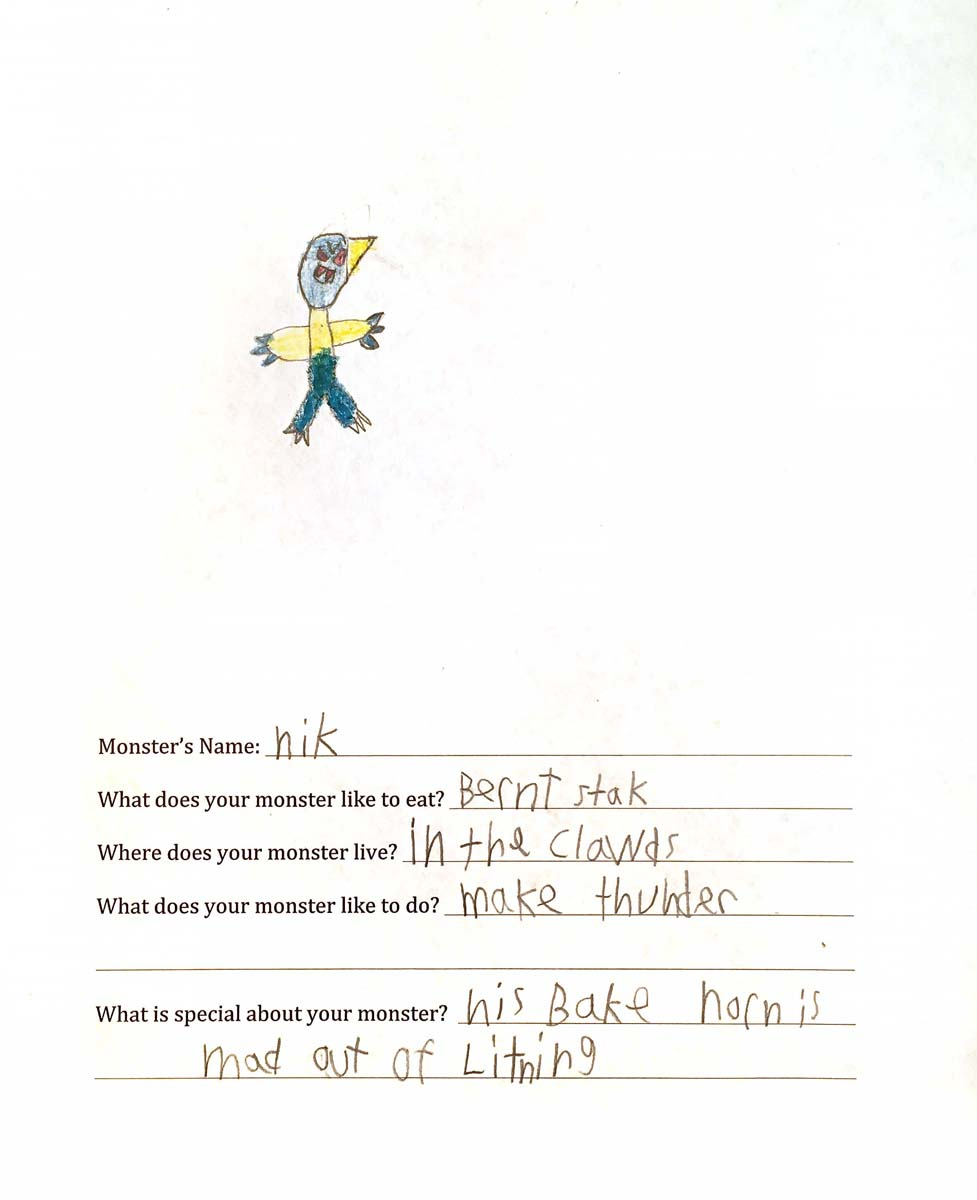 Monster's Name: nik
What does your monster like to eat? Bernt stak
Where does your monster live? in the clawds
What does your monster like to do? make thunder
What is special about your monster? his Bake horn is
mad out of Litning